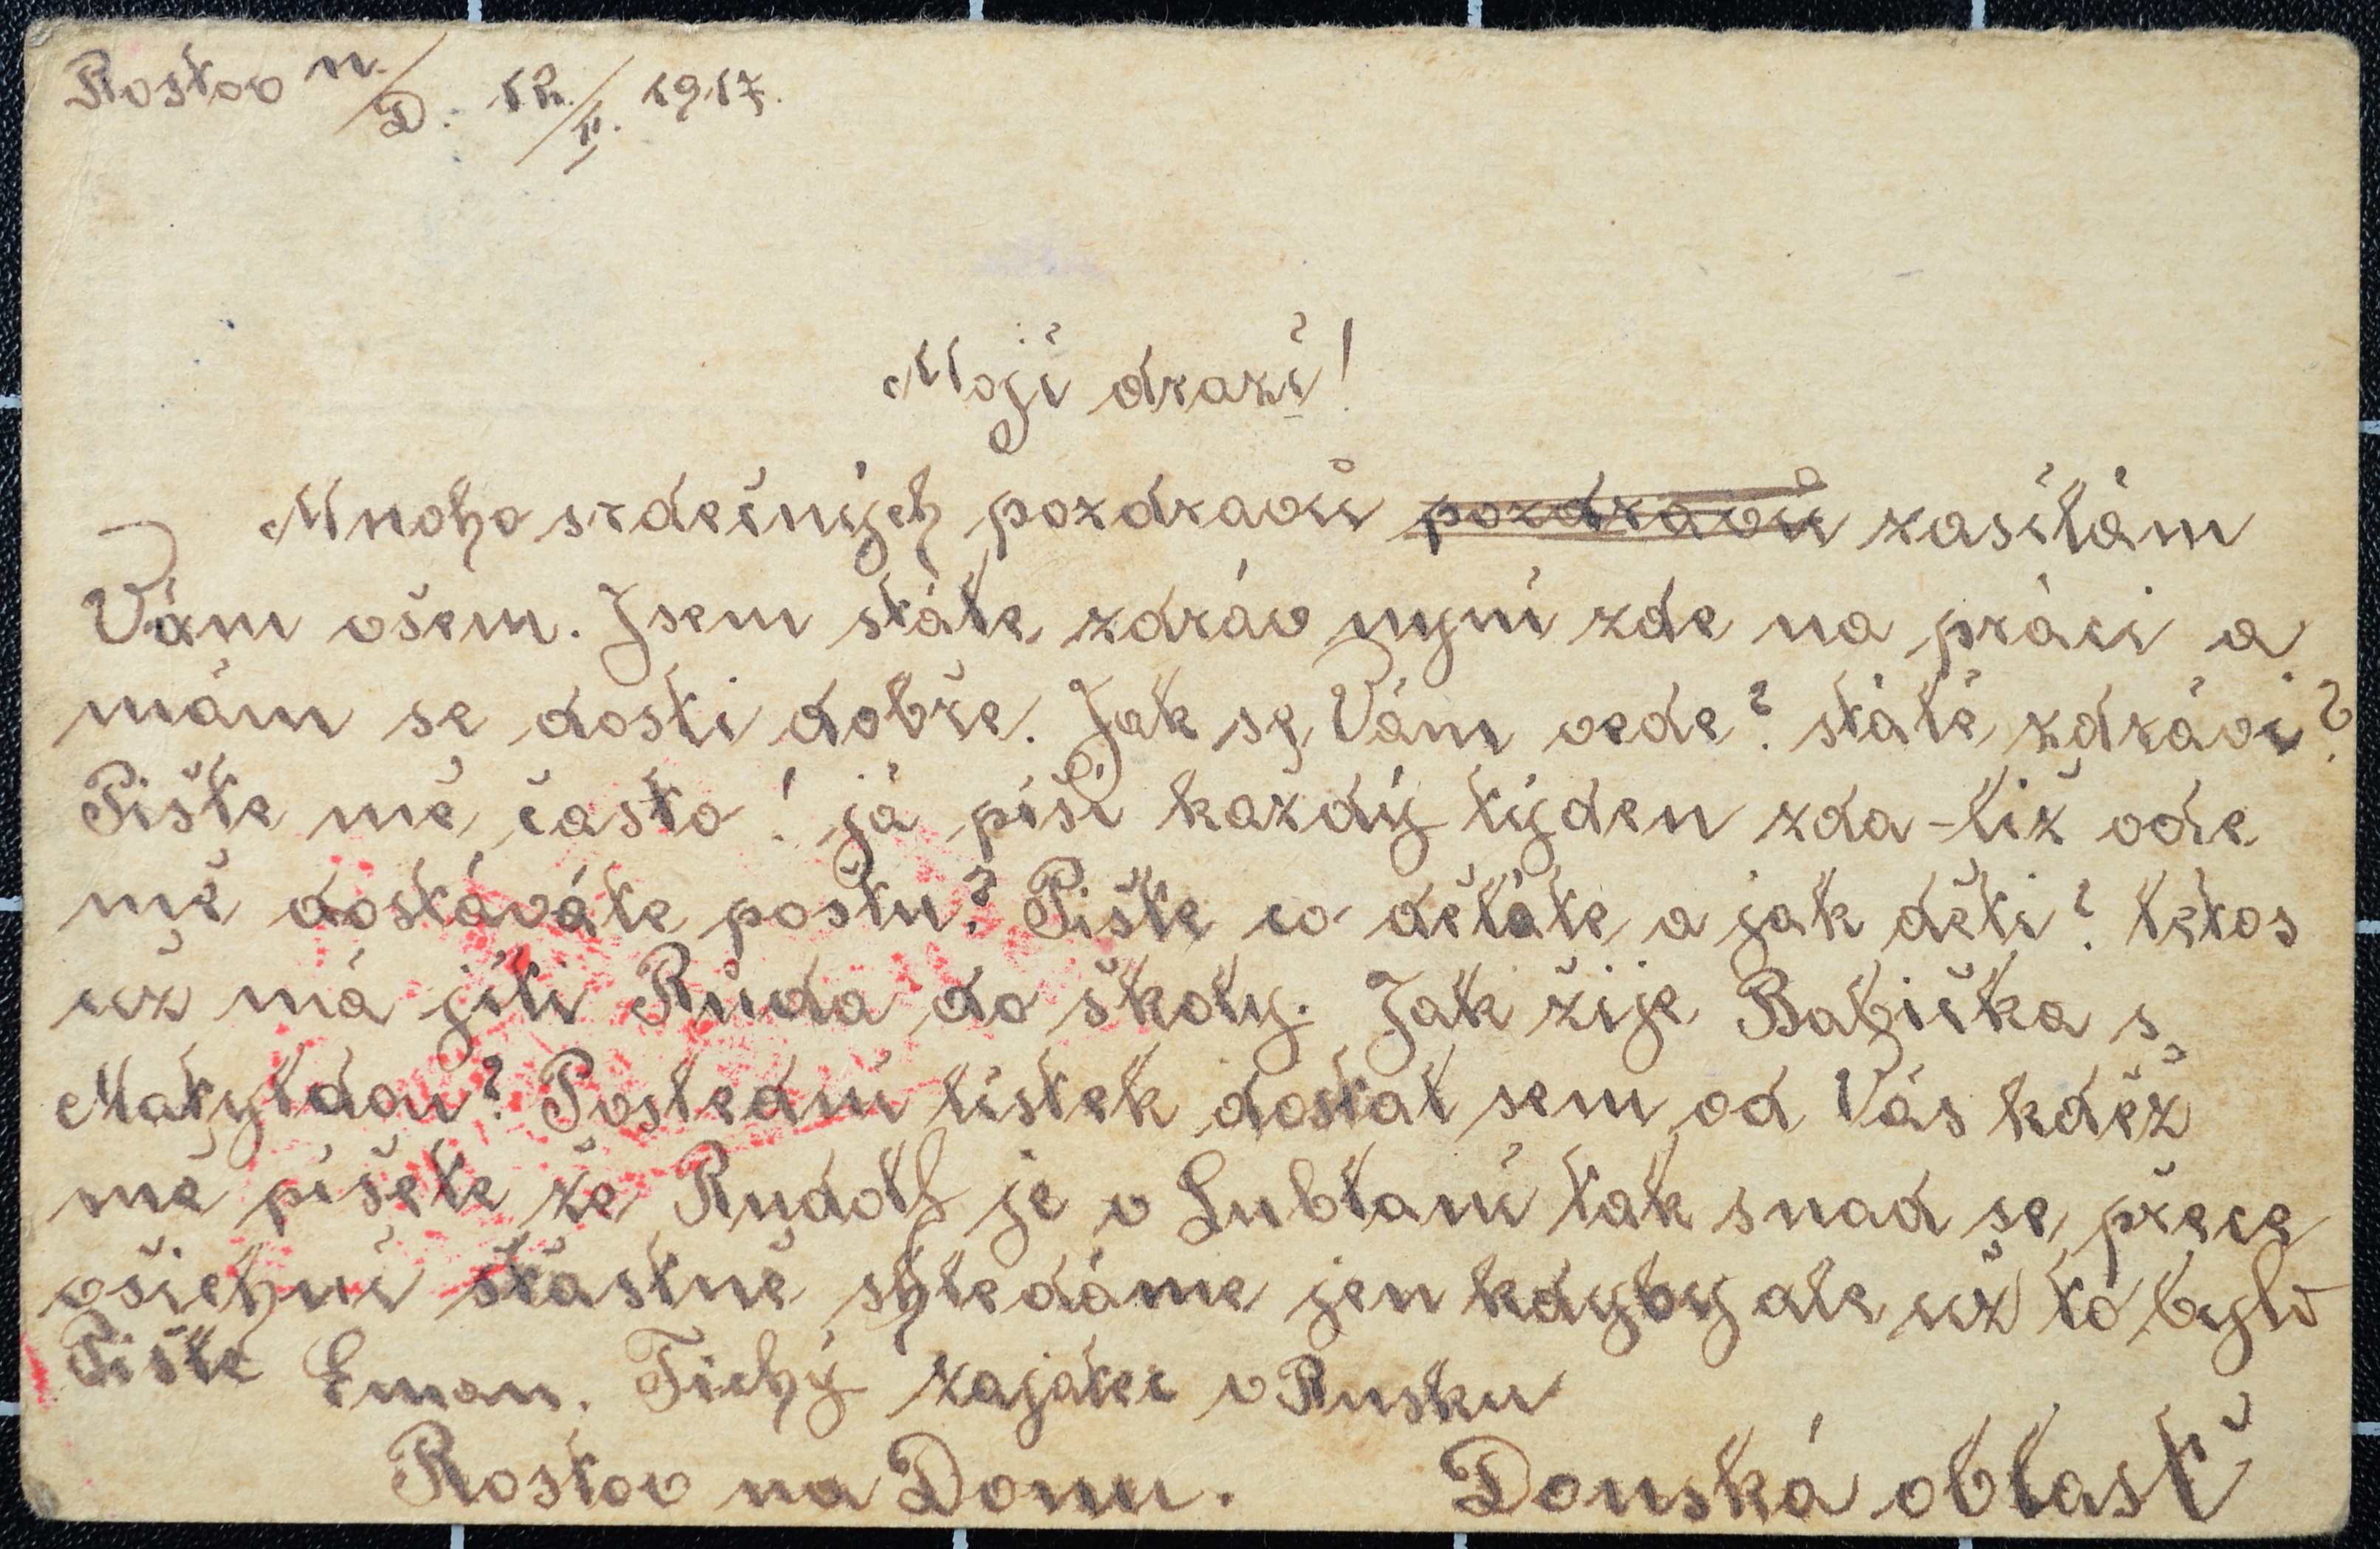 Rostov n./D. 12./II. 1917.
Moji drazí!
Mnoho srdečných pozdravů ~~pozdravů~~ zasílám
Vám všem. Jsem stále zdráv nyní zde na práci a
mám se dosti dobře. Jak se Vám vede? stálé zdrávi?
Pište mě často! já píši každý týden zda-liž ode
mě dostáváte poštu? Pište co děláte a jak děti? letos
už má jíti Růda do školy. Jak žije Babička s
Matyldou? Poslední lístek dostal sem od Vás kděž
mě píšete že Rudolf je v Lublani tak snad se přece
všichni štastně shledáme jen kdyby ale už to bylo
Pište Eman. Tichý zajatec v Rusku
Rostov na Donu. Donská oblasť